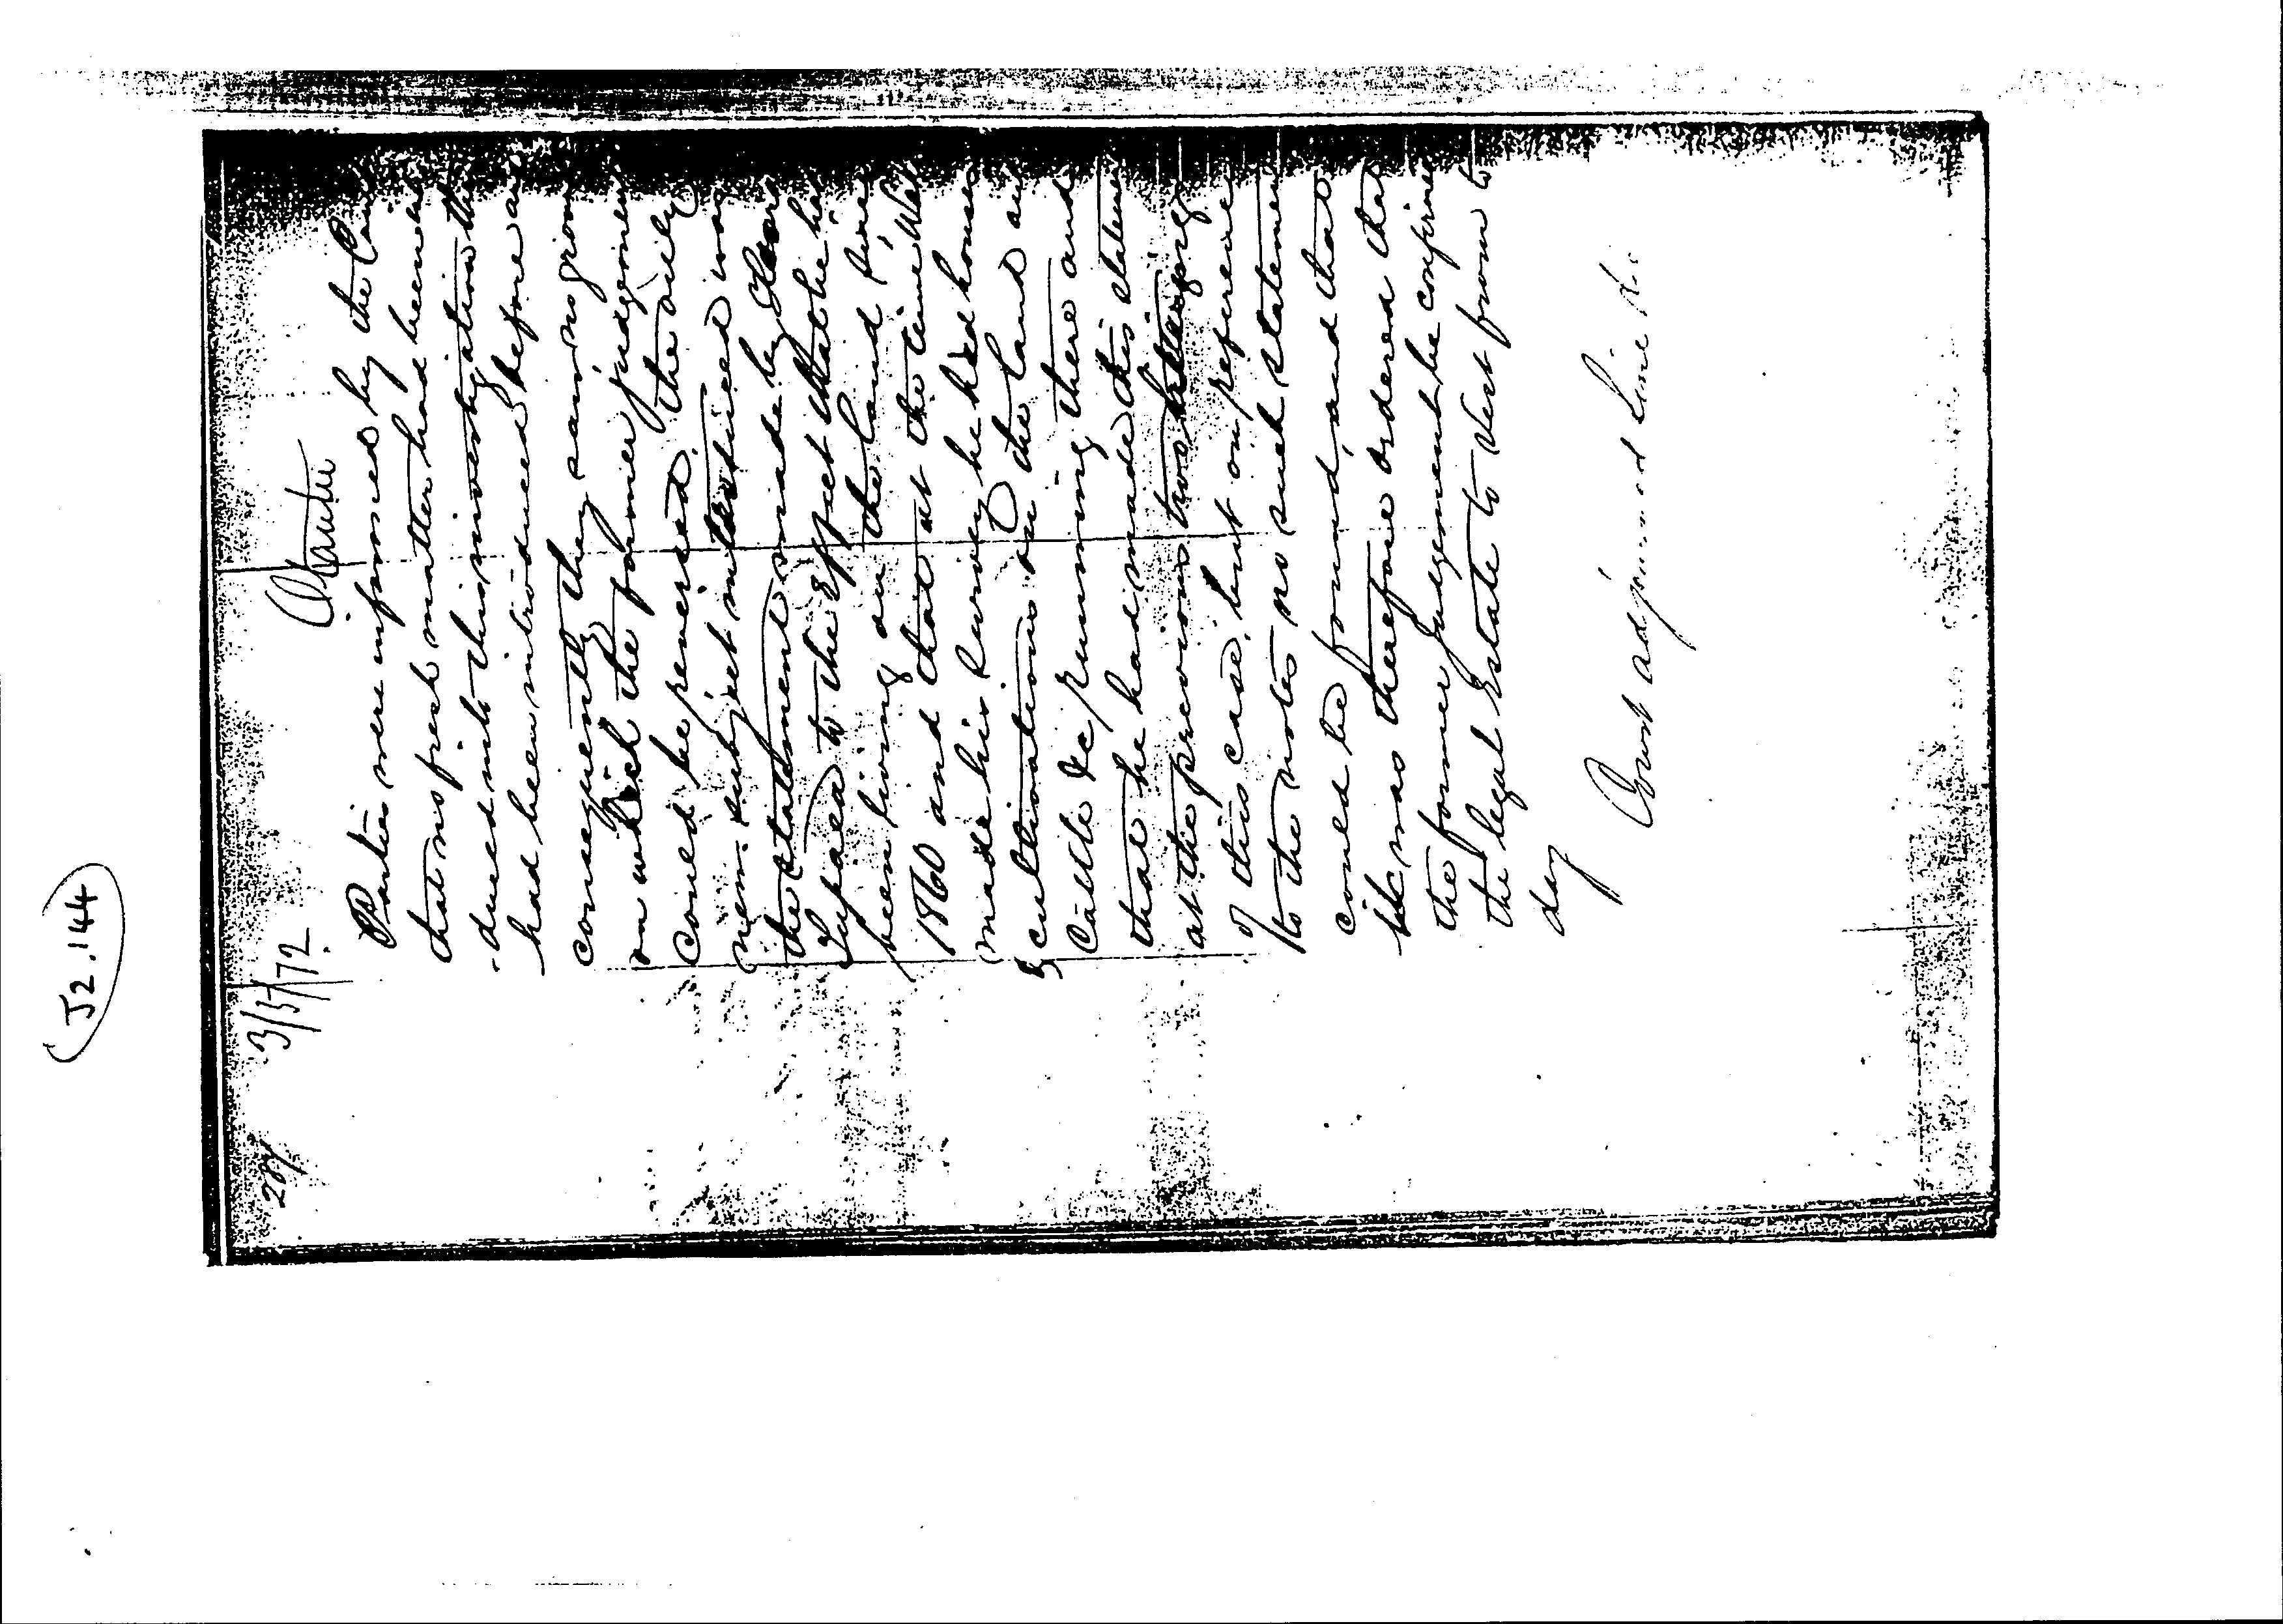 J2.144
287
3/5/72
Parties were informed by the Cour
that no fresh matter had been in
-duced into this investigation th
had been introduced before an
consequently they saw no groun
on which the former judgemen
could be reversed, the only
new subject noticed was
the statement made by
to the effect that he ha
been living on the land since
1860 and that at the time Wal
made his survey he had houses
& cultivations on the land an
Cattle &c running there and
that he had made this statemen
at the previous two hearings
of this case, but on reference
to the notes no such statemen
could be found, and that
it was therefore ordered that
the former judgement be confirmed
the legal Estate to vest from to
day
Court adjourned